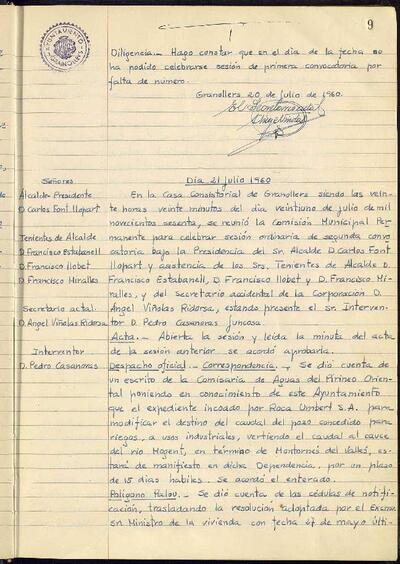 9
AYUNTAMIENTO
GRANOLLERS
Diligencia.- Hago constar que en el día de la fecha no
ha podido celebrarse sesión de primera convocatoria por
falta de número.
Granollers 20 de julio de 1960.
El Secretario actal.
Señores
Alcalde-Presidente
D. Carlos Font Llopart
Tenientes de Alcalde
D. Francisco Estabanell
D. Francisco Llobet
D. Francisco Miralles
Secretario actal.
D. Angel Viñolas Ridorsa
Interventor
D. Pedro Casanoras
Día 21 julio 1960
En la Casa Consistorial de Granollers siendo las vein-
te horas veinte minutos del día veintiuno de julio de mil
novecientos sesenta, se reunió la Comisión Municipal Per-
manente para celebrar sesión ordinaria de segunda convo
catoria bajo la Presidencia del Sr. Alcalde D. Carlos Font
Llopart y asistencia de los Srs. Tenientes de Alcalde D.
Francisco Estabanell, D. Francisco Llobet y D. Francisco Mi-
ralles, y del Secretario accidental de la Corporación D.
Angel Viñolas Ridorsa, estando presente el Sr. Interven-
tor D. Pedro Casanoras Juncosa.
Acta.- Abierta la sesión y leída la minuta del acta
de la sesión anterior se acordó aprobarla.
Despacho oficial.- Correspondencia.- Se dió cuenta de
un escrito de la Comisaria de Aguas del Pirineo Orien-
tal poniendo en conocimiento de este Ayuntamiento
que el expediente incoado por Roca Umbert S.A. para
modificar el destino del caudal del pozo concedido para
riegos, a usos industriales, vertiendo el caudal al cauce
del río Mogent, en término de Montornés del Vallés, es-
tará de manifiesto en dicha Dependencia, por un plazo
de 15 días hábiles. Se acordó el enterado.
Polígono Palou.- Se dió cuenta de las cédulas de notifi-
cación, trasladando la resolución adoptada por el Excmo.
Sr. Ministro de la vivienda con fecha 27 de mayo últi-